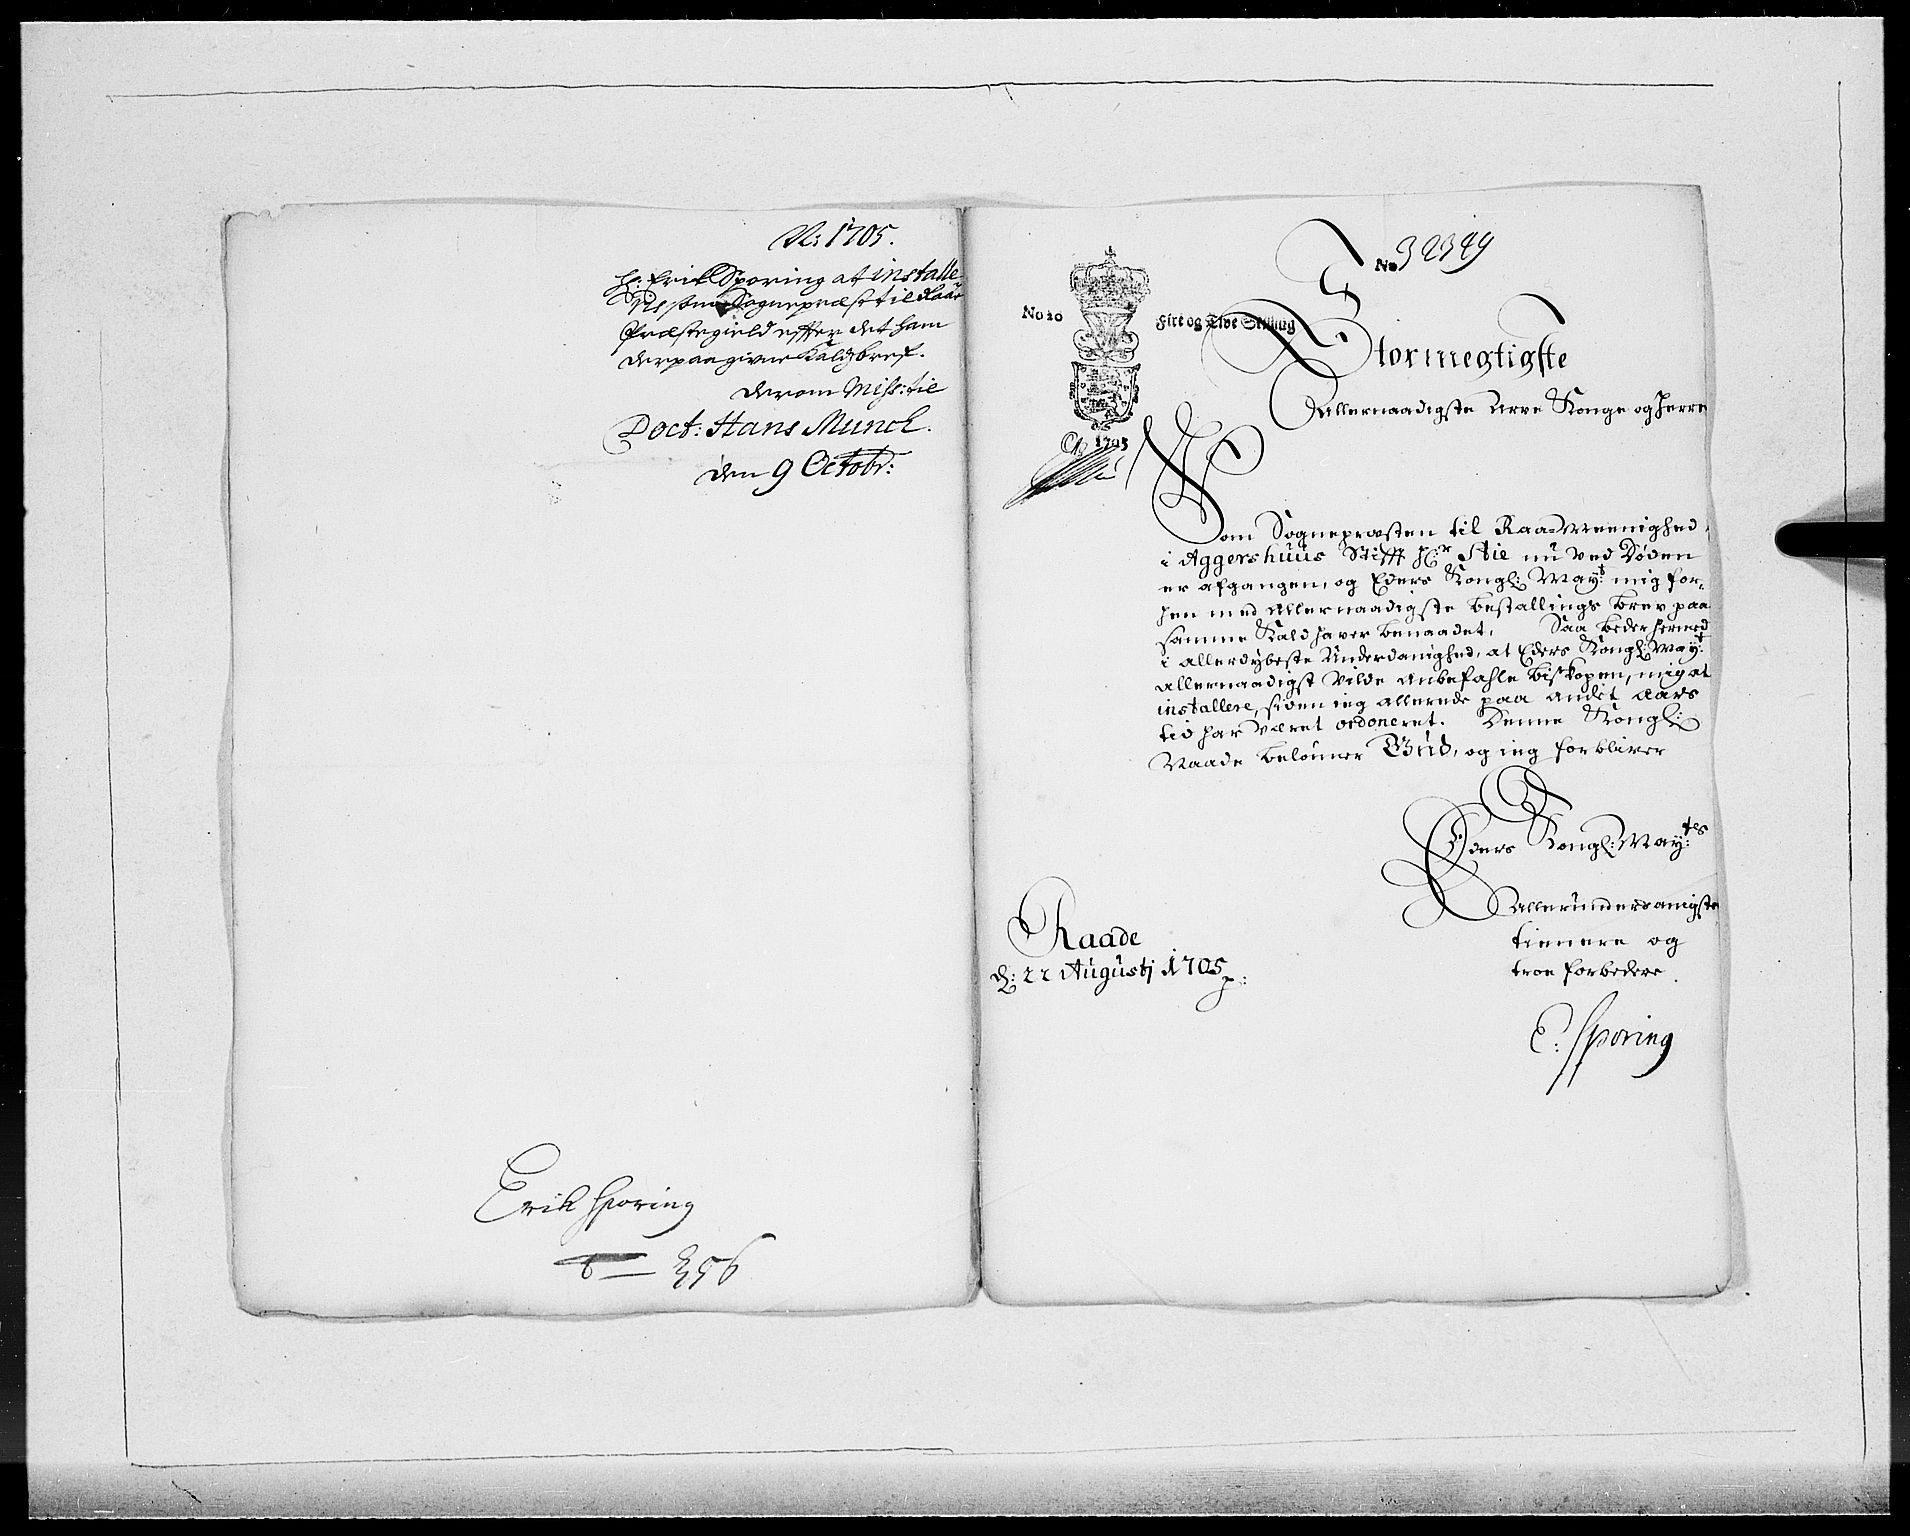 Ao 1705.
H: Erik Sporing at installe-
ris som Sognepræst til Raae
Præstegield effter det ham
derpaa givne Kaldsbref.
derom Miss: til
Doct: Hans Munch.
den 9 Octobr:
Erik Sporing
356
No 32349
No 20
Fire og Tive Skilling
1705
Stormegtigste
Allernaadigste Arve Konge og Herre
Som Sognepræsten til Raae Meenighed
i Aggershuus Stifft Hr Stie nu ved Døden
er afgangen, og Eders Kongl: Mayt: mig for-
hen med Allernaadigste bestallings brev paa
samme Kald haver benaadet, Saa beder hermed
i allerdybeste Underdanighed, at Eders Kongl: Mayt:
allernaadigst vilde anbefahle biskopen, mig at
installere, siden jeg allerede paa andet aars
tid har været ordoneret. Denne Kongl:
Naade belønner Gud, og jeg forbliver
Eders Kongl: Mayts:
Allerunderdanigste
tienere og
troe forbedere.
Raade
d: 22 Augustj 1705
E: Sporing